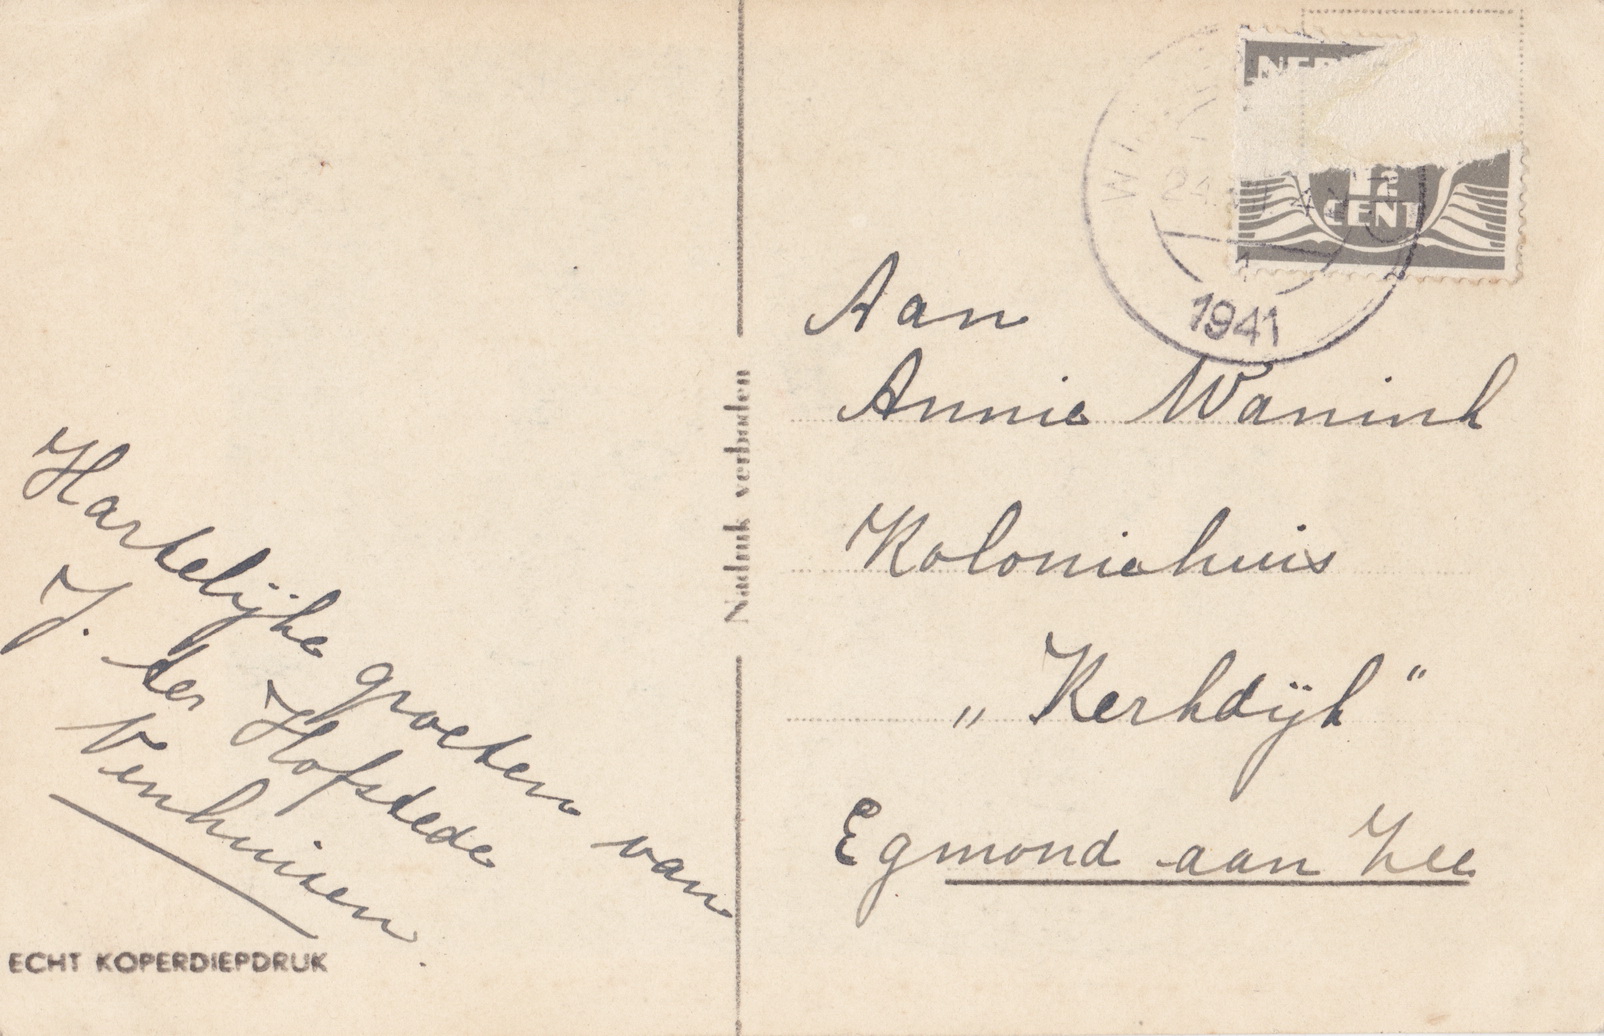 Hartelijke groeten van
J. ter Hofstede
Venhuizen
ECHT KOPERDIEPDRUK
Nadruk verboden
1941
CENT
Aan
Annie Wanink
Koloniehuis
„Kerkdijk"
Egmond aan Zee